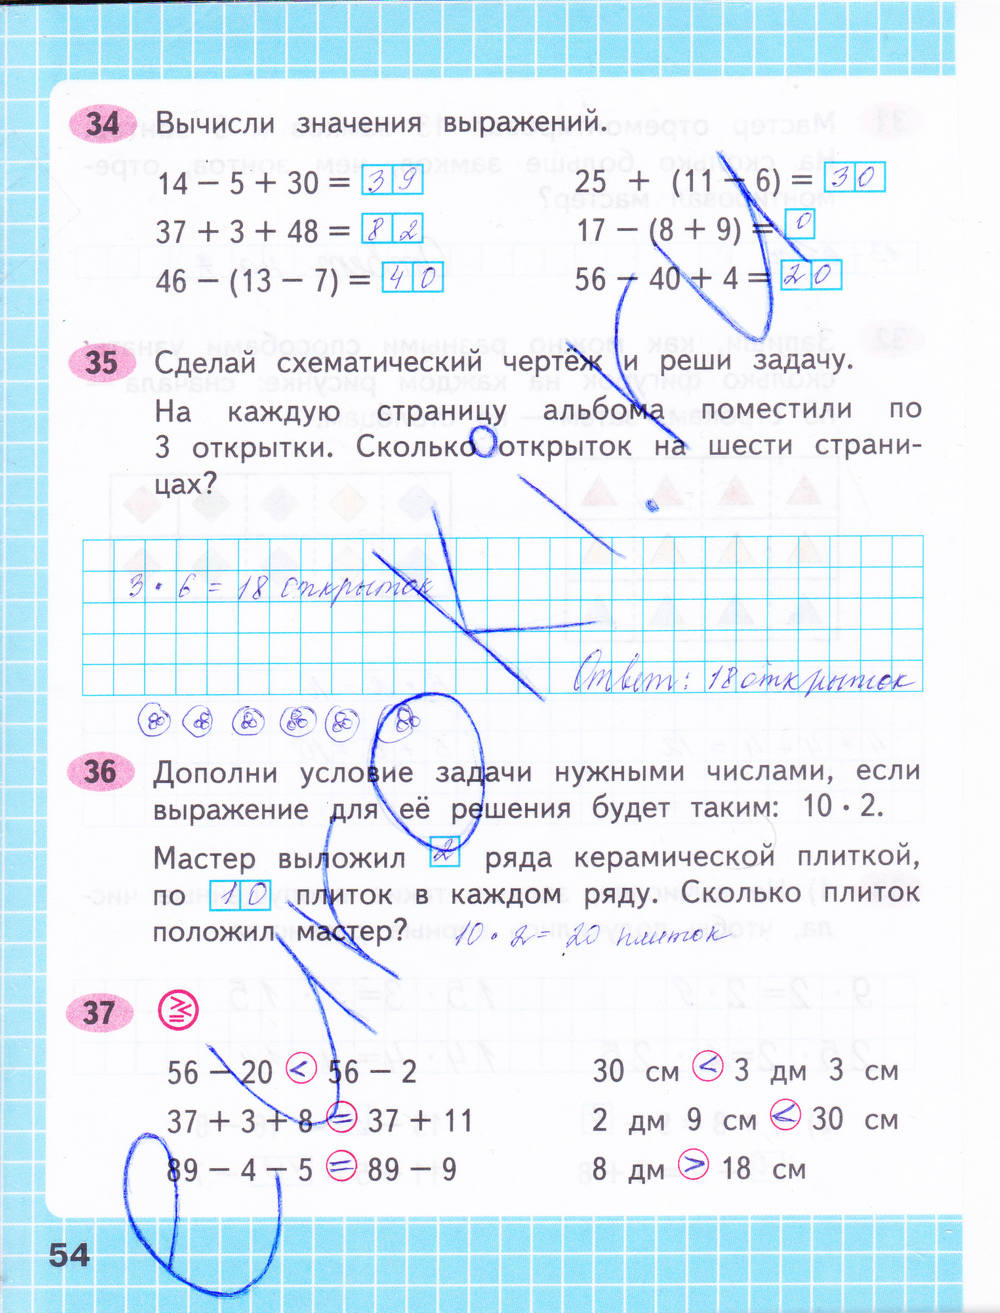 34 Вычисли значения выражений.
14 − 5 + 30 = 39 25 + (11 − 6) = 30
37 + 3 + 48 = 82 17 − (8 + 9) = 0
46 − (13 − 7) = 40 56 − 40 + 4 = 20
35 Сделай схематический чертёж и реши задачу.
На каждую страницу альбома поместили по
3 открытки. Сколько открыток на шести страни-
цах?
3 · 6 = 18 открыток
Ответ: 18 открыток
36 Дополни условие задачи нужными числами, если
выражение для её решения будет таким: 10 · 2.
Мастер выложил 2 ряда керамической плиткой,
по 10 плиток в каждом ряду. Сколько плиток
положил мастер? 10 · 2 = 20 плиток
37
56 − 20 < 56 − 2 30 см < 3 дм 3 см
37 + 3 + 8 = 37 + 11 2 дм 9 см < 30 см
89 − 4 − 5 = 89 − 9 8 дм > 18 см
54